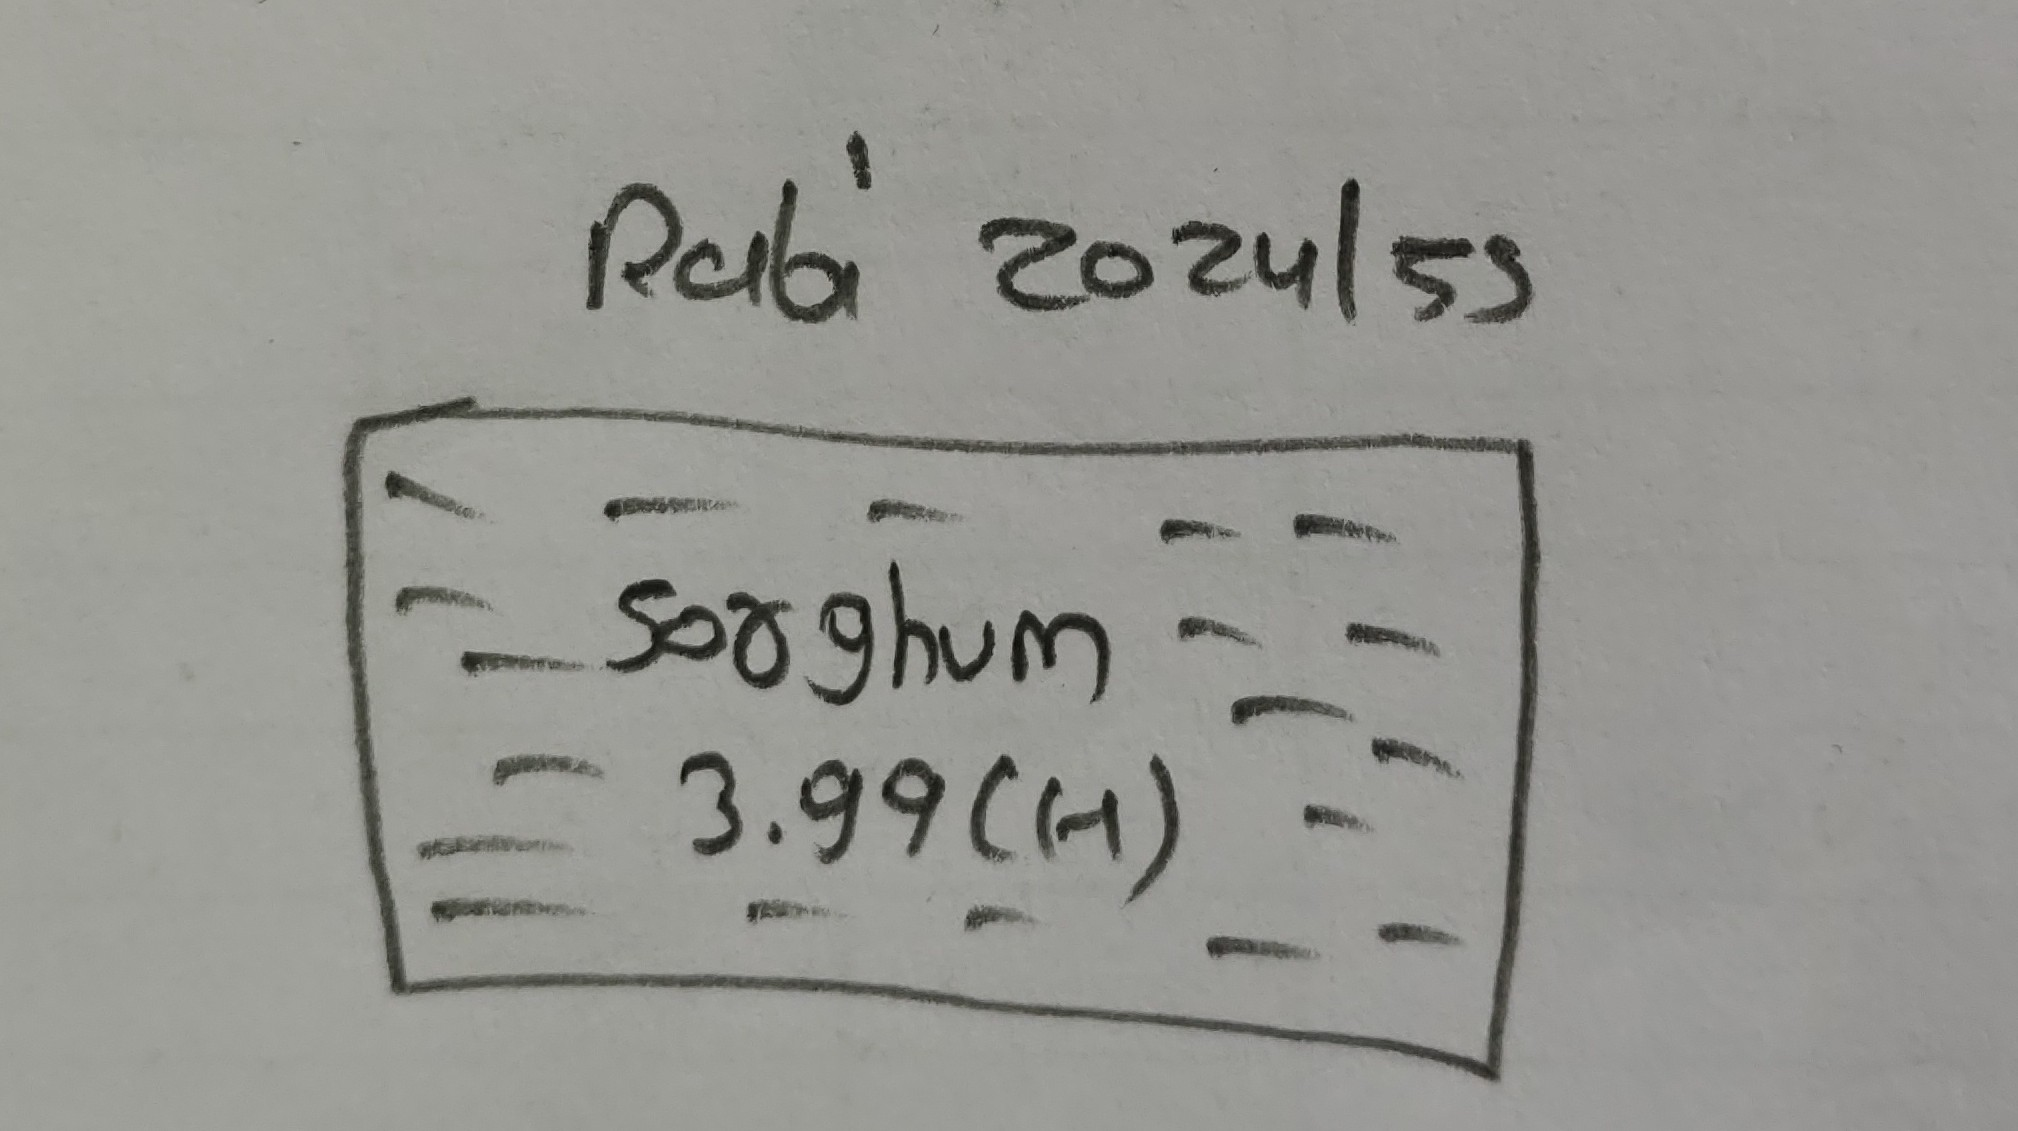 Rabi 2024/53
Sorghum
3.99(H)